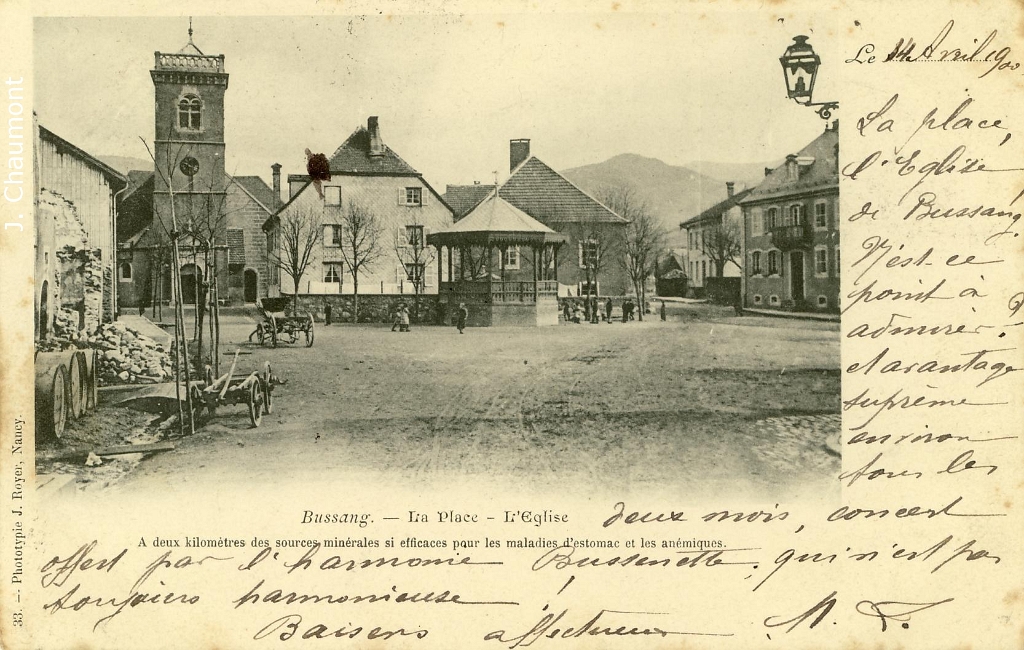 J. Chaumont
33. — Phototypie J. Royer, Nancy.
Le 14 Avril 1900
La place,
l'Eglise
de Bussang.
N'est-ce
point à
admirer ?
et avantage
suprême
environ
tous les
Bussang. — La Place - L'Eglise
deux mois, concert
A deux kilomètres des sources minérales si efficaces pour les maladies d'estomac et les anémiques.
offert par l'harmonie Bussenette, qui n'est pas
toujours harmonieuse !
Baisers affectueux